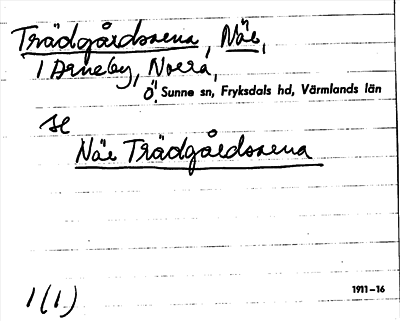 Trädgårdsarna, Näs,
i Arneby, Norra,
Ö. Sunne sn, Fryksdals hd, Värmlands län
se
Näs Trädgårdsarna
1(1)
1911-16